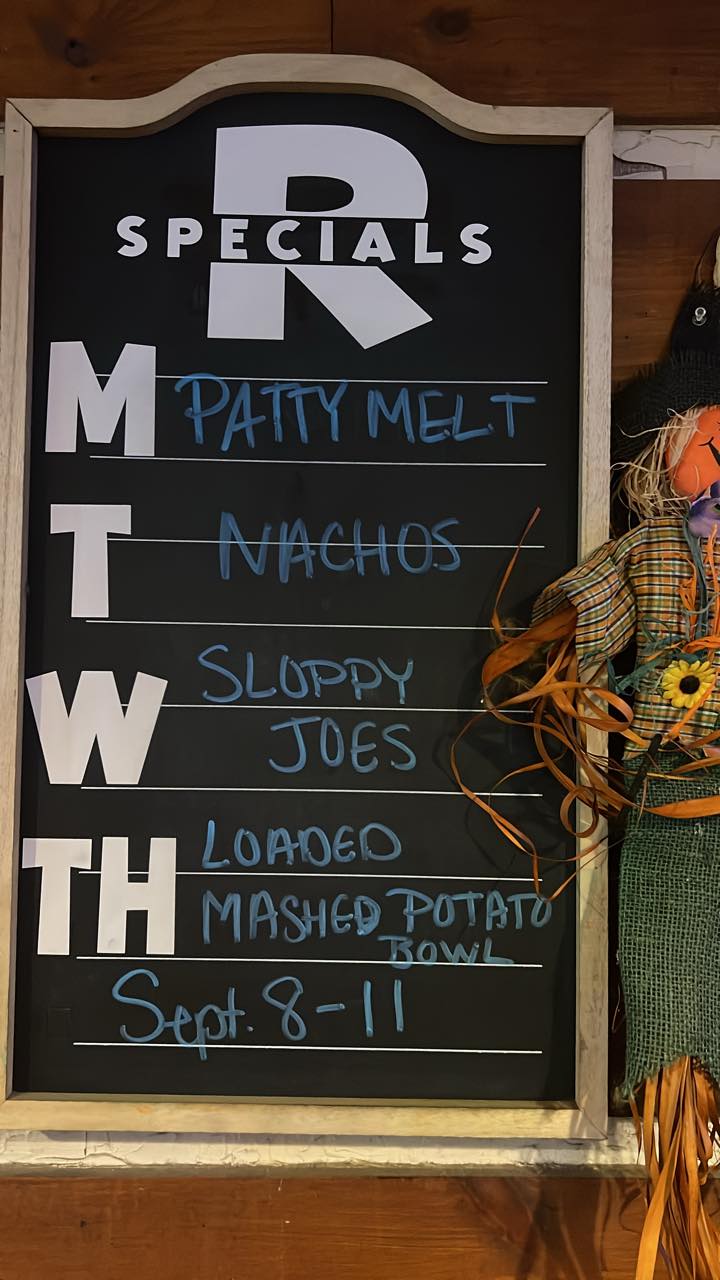 R
SPECIALS
M PATTY MELT
T NACHOS
W SLOPPY
JOES
TH LOADED
MASHED POTATO
BOWL
Sept. 8-11